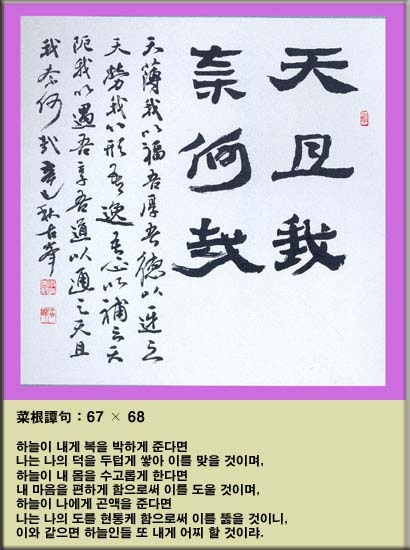 天且我
奈何哉
天薄我以福吾厚吾德以迓之
天勞我以形吾逸吾心以補之天
阨我以遇吾亨吾道以通之天且
我奈何哉 辛巳秋古峯
菜根譚句 : 67 × 68
하늘이 내게 복을 박하게 준다면
나는 나의 덕을 두텁게 쌓아 이를 맞을 것이며,
하늘이 내 몸을 수고롭게 한다면
내 마음을 편하게 함으로써 이를 도울 것이며,
하늘이 나에게 곤액을 준다면
나는 나의 도를 현통케 함으로써 이를 뚫을 것이니,
이와 같으면 하늘인들 또 내게 어찌 할 것이랴.